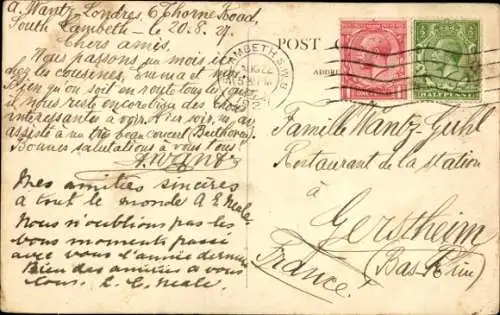 A. Wantz - Londres, 6 Thorne Road,
South Lambeth - le 20.8.27.
Chers amis,
Nous passons un mois ici
chez les cousines, Emma et moi.
Bien qu'on soit en route tous les jours
il nous reste encore bien des choses
intéressantes à voir. Hier soir, nous avons
assisté à un très beau concert (Beethoven).
Bonnes salutations à vous tous!
A. Wantz
Mes amitiés sincères
a tout le monde A E Neale.
Nous n'oublions pas les
bons moments passé
avec vous l'année dernière
Bien des amitiés a vous
tous. E. E. Neale.
LAMBETH S.W.8
POST
ADDRE
HALFPENNY
Famille Wantz-Guhl
Restaurant de la station
à
Gerstheim
(Bas Rhin)
France.